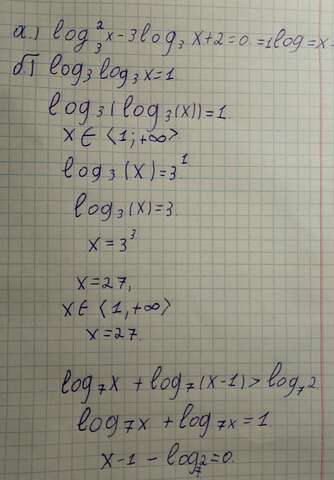 а.) log₃²x-3log₃x+2=0.=1log=x-
б) log₃log₃x=1
log₃(log₃(x))=1.
x∈⟨1;+∞⟩
log₃(x)=3¹
log₃(x)=3.
x=3³
x=27,
x∈⟨1,+∞⟩
x=27.
log₇x+log₇(x-1)>log₇2.
log₇x+log₇x=1.
x-1-log₇2=0.